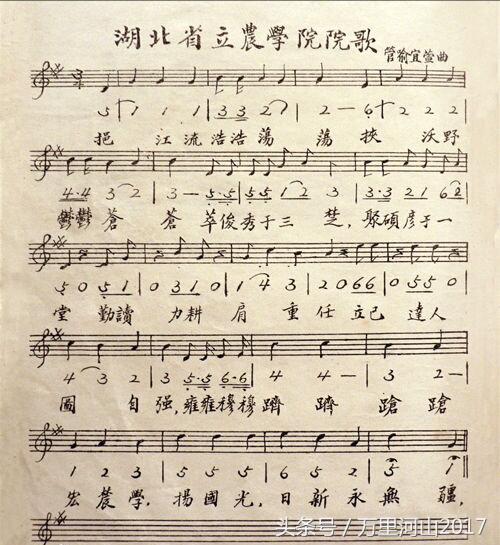 湖北省立農學院院歌
管瑜宜萱曲
5 1 1 1 | 3 3 2 7 | 2 — 6 | 2 2 2 |
挹 江流浩浩蕩 蕩 挾 沃野
4·4 3 2 | 3 — 5·5 | 5·5 1 2 3 | 3·3 2 1 6 2
鬱鬱蒼 蒼 萃俊秀于三 楚，聚碩彥于一
5 0 5 1 | 0 3 1 0 | 1 4 3 | 2 0 6 6 | 0 5 5 0
堂 勤讀 力耕 肩 重 任 立己 達人
4 3 2 | 3 5·5 6·6 | 4 4 — | 3 2 —
圖 自強，雍雍穆穆 躋 躋 蹌 蹌
1 2 3 | 5 5 5 | 6 5 2 | 5 1
宏農學，揚國光，日新永無疆，
头条号 / 万里河山2017